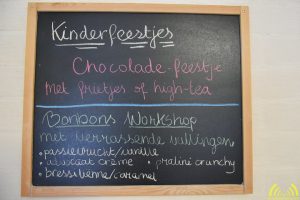 Kinderfeestjes
Chocolade-feestje
Met frietjes of high-tea
Bonbons Workshop
met verrassende vullingen
• passievrucht/vanille
• advocaat crème • praliné crunchy
• bressilienne/caramel